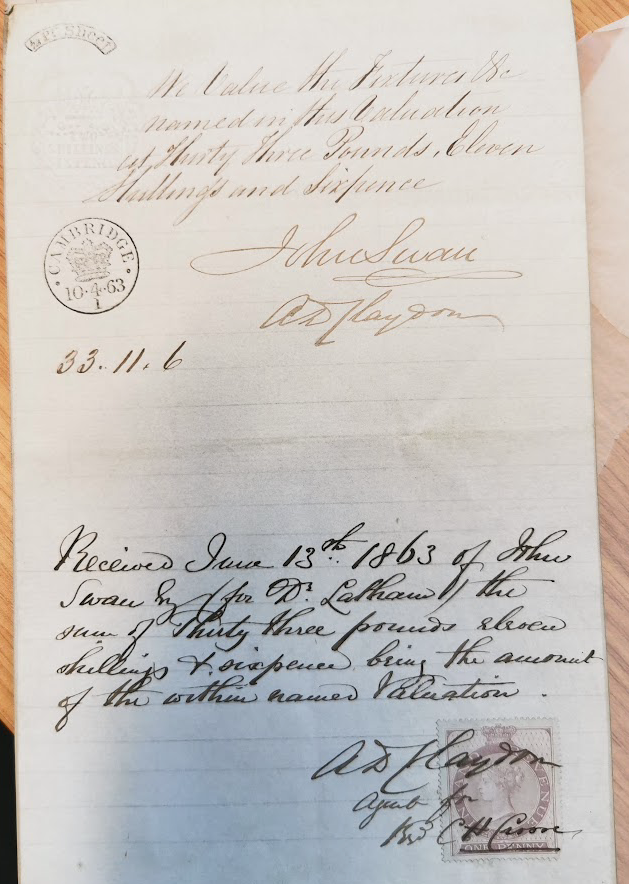 We Value the Fixtures &c
named in this Valuation
at Thirty Three Pounds, Eleven
Shillings and Sixpence
John Swan
CAMBRIDGE
10·4·63
1
A D Claydon
33.11.6
Received June 13th. 1863 of John
Swan Esq (for Dr. Latham) the
sum of Thirty three pounds eleven
shillings & sixpence being the amount
of the within named Valuation.
A D Claydon
Agent for
C H
ONE PENNY